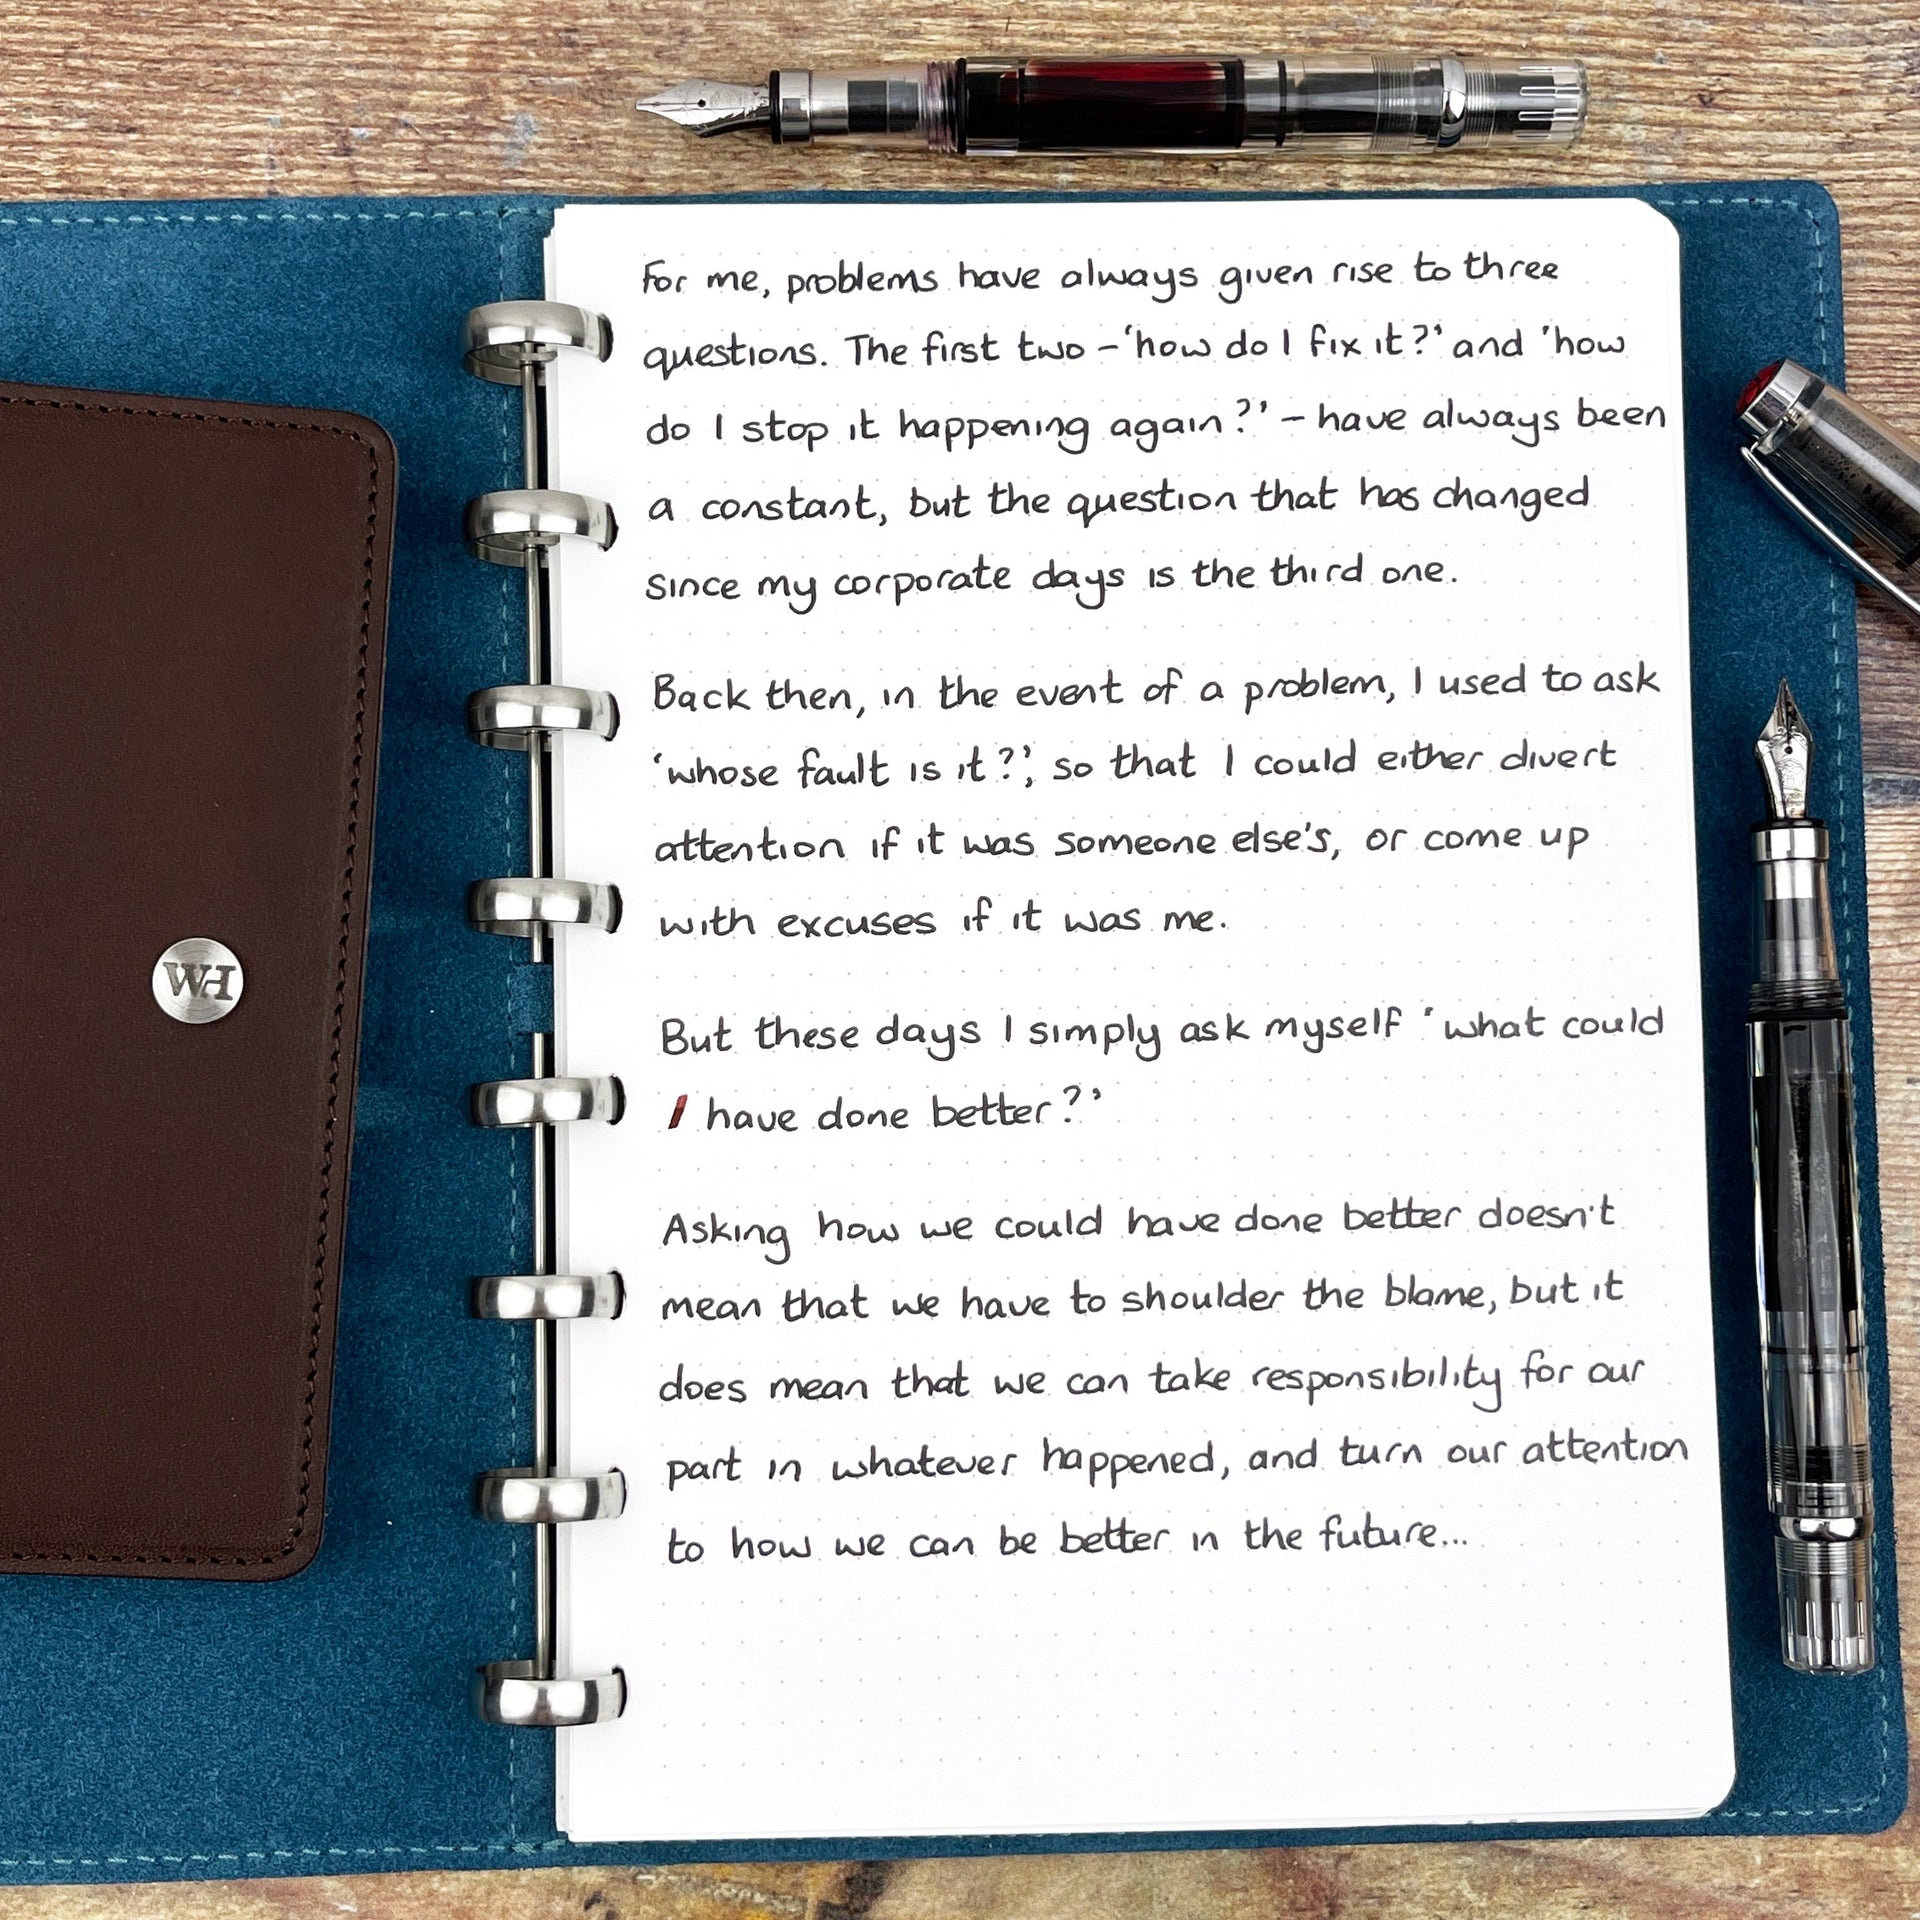 WH
For me, problems have always given rise to three
questions. The first two – 'how do I fix it?' and 'how
do I stop it happening again?' – have always been
a constant, but the question that has changed
since my corporate days is the third one.
Back then, in the event of a problem, I used to ask
'whose fault is it?', so that I could either divert
attention if it was someone else's, or come up
with excuses if it was me.
But these days I simply ask myself 'what could
I have done better?'
Asking how we could have done better doesn't
mean that we have to shoulder the blame, but it
does mean that we can take responsibility for our
part in whatever happened, and turn our attention
to how we can be better in the future...